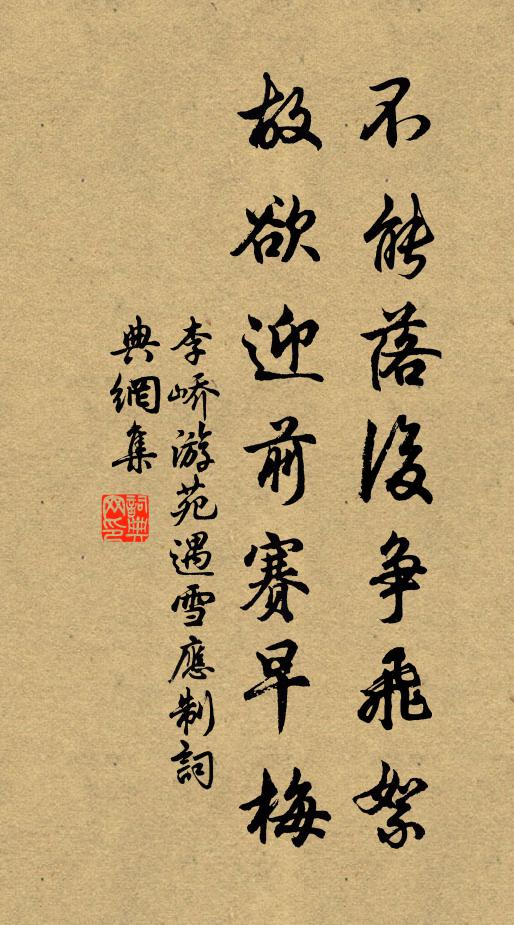 不能落後争飛絮
故欲迎前賽早梅
李嶠游苑遇雪應制詞
典網集
詞典
网印